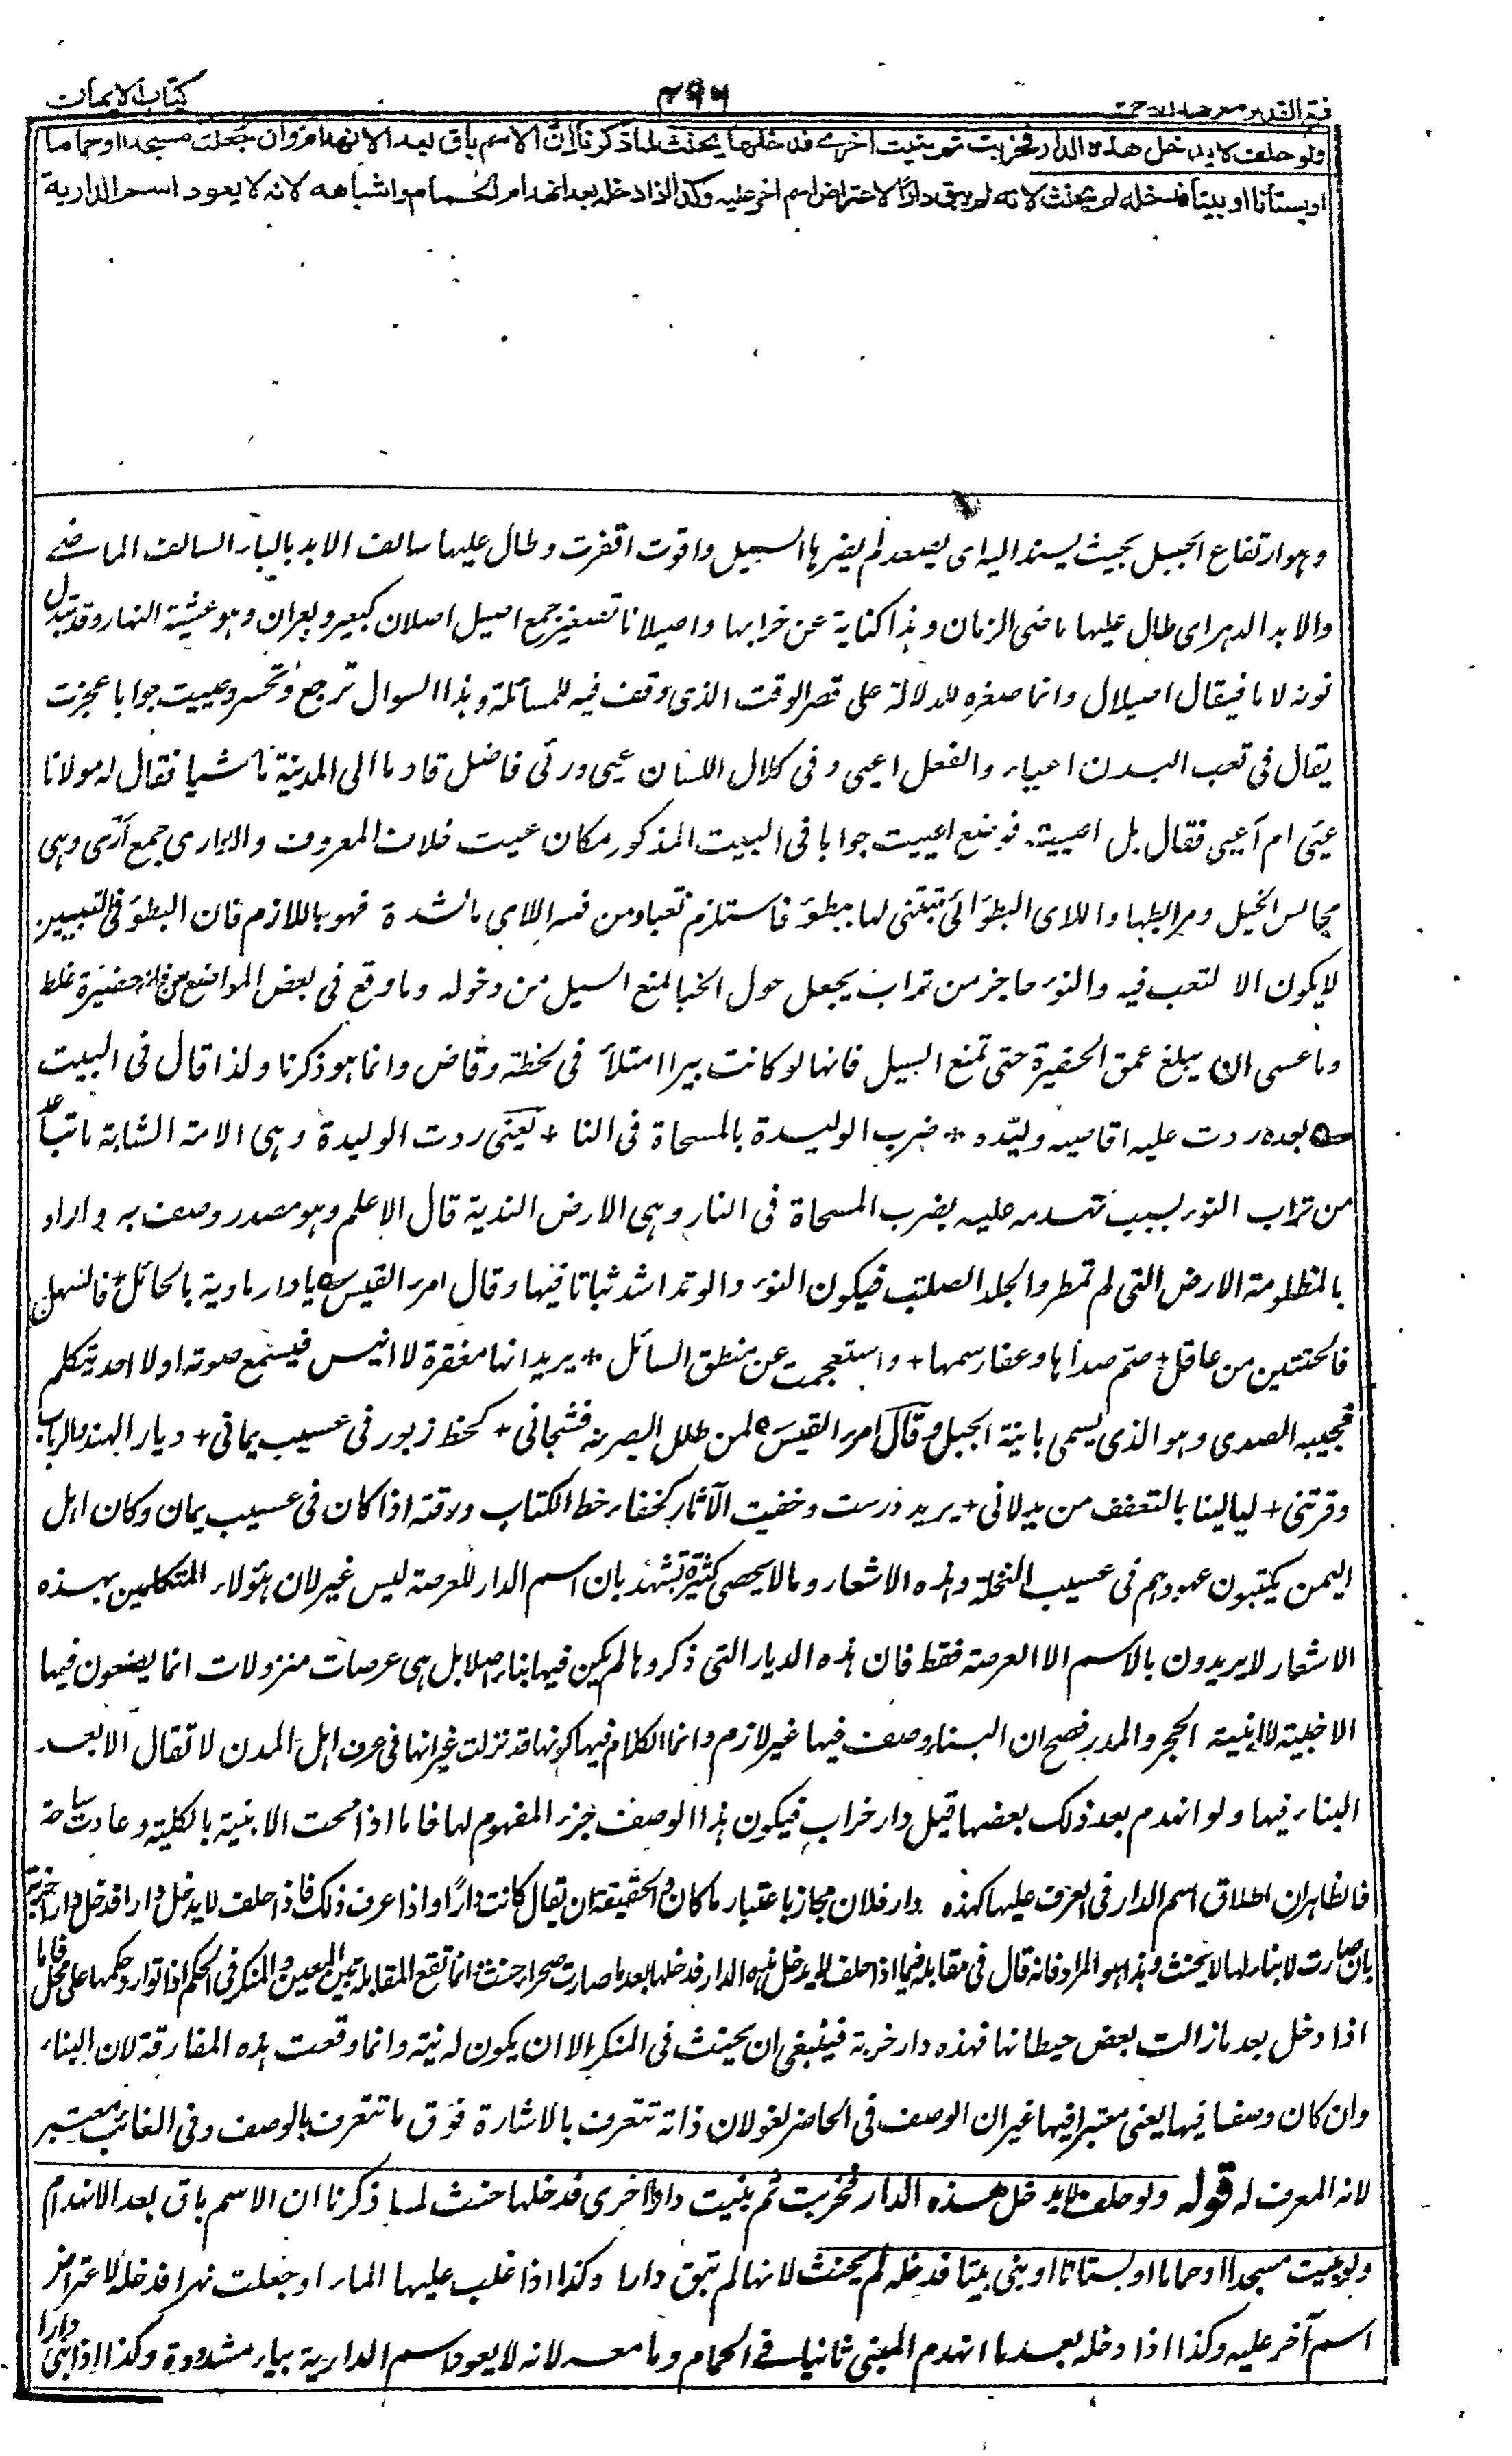 فتح القدير مع هداية
٤٩٦
كتاب الايمان
ولو حلف لا يدخل هذه الدار فخربت ثم بنيت اخرى فدخلها يحنث لما ذكرنا ان الاسم باق بعد الانهدام وان جعلت مسجدا او حماما
او بستانا او بيتا فدخله لم يحنث لانه لم يبق دارًا لاعتراض اسم اخر عليه وكذا اذا دخله بعد انهدام الحمام واشباهه لانه لا يعود اسم الدارية
وهو ارتفاع الجبل بحيث يسند اليه اى يصعد لم يضر بها السيل واقوت اقفرت وطال عليها سالف الابد بالباء السالف الماضى
والابد الدهر اى طال عليها ماضى الزمان وهذا كناية عن خرابها واصيلانا تصغير جمع اصيل اصلان كبعير وبعران وهو عشية النهار وقد تبدل
نونه لاما فيقال اصيلال وانما صغره للدلالة على قصر الوقت الذى وقف فيه للمسائلة وهذا السوال ترجع وتحسر وعييت جوابا عجزت
يقال فى تعب البدن اعياء والفعل اعيى وفى كلال اللسان عيى ورئى فاضل قادما الى المدينة ماشيا فقال له مولانا
عيى ام اعيى فقال بل اعييت فوضع اعييت جوابا فى البيت المذكور مكان عييت خلاف المعروف والاوارى جمع آرى وهى
محابس الخيل ومرابطها واللاى البطؤ اى تبتنى لها ببطؤ فاستلزم تعبا ومن فسر اللاى بالشدة فهو باللازم فان البطؤ فى التبيين
لايكون الا لتعب فيه والنؤى حاجز من تراب يجعل حول الخبا لمنع السيل من دخوله وما وقع فى بعض المواضع من انه حفيرة غلط
وما عسى ان يبلغ عمق الحفيرة حتى تمنع السيل فانها لو كانت بيرا امتلأ فى لحظة وفاض وانما هو ذكرنا ولذا قال فى البيت
بعده ردت عليه اقاصيه ولبّده + ضرب الوليدة بالمسحاة فى الثا + يعنى ردت الوليدة وهى الامة الشابة ما تباعد
من تراب النؤى بسبب تهدمه عليه بضرب المسحاة فى الثاد وهى الارض الندية قال الاعلم وهو مصدر وصف به واراد
بالمظلومة الارض التى لم تمطر والجلد الصلب فيكون النؤى والوتد اشد ثباتا فيها وقال امرء القيس يا دار ماوية بالحائل + فالسهب
فالخبتين من عاقل + صم صداها وعفا رسمها + واستعجمت عن منطق السائل + يريد انها مقفرة لا انيس فيسمع صوته اولا احد يتكلم
فيجيبه الصدى وهو الذى يسمى بابنة الجبل وقال امرء القيس لمن طلل ابصرته فشجانى + كخط زبور فى عسيب يمانى + ديار الهند والرباب
وفرتنى + ليالينا بالنعف من بدلانى + يريد درست وخفيت الآثار كخفاء خط الكتاب ودقته اذا كان فى عسيب يمان وكان اهل
اليمن يكتبون عهودهم فى عسيب النخلة وهذه الاشعار وما لا يحصى كثرة تشهد بان اسم الدار للعرصة ليس غير لان هؤلاء المتكلمين بهذه
الاشعار لا يريدون بالاسم الا العرصة فقط فان هذه الديار التى ذكروها لم يكن فيها بناء اصلا بل هى عرصات منزولات انما يضعون فيها
الاخبية لا ابنية الحجر والمدر فصح ان البناء وصف فيها غير لازم وانما الكلام فيها كونها قد نزلت غير انها فى عرف اهل المدن لا تقال الا بعد
البناء فيها ولو انهدم بعد ذلك بعضها قيل دار خراب فيكون هذا الوصف جزء المفهوم لها فاما اذا محت الابنية بالكلية وعادت ساحة
فالظاهر ان اطلاق اسم الدار فى العرف عليها كهذه دار فلان مجاز باعتبار ما كان والحقيقة ان يقال كانت دارًا واذا عرف ذلك فاذا حلف لا يدخل دارا فدخل دارا خربة
بان صارت لا بناء لها لا يحنث وهذا هو المراد فانه قال فى مقابله فيما اذا حلف لا يدخل هذه الدار فدخلها بعد ما صارت صحراء حنث وانما تقع المقابلة بين المعين والمنكر فى الحكم اذا توارد حكمها على محل فاما
اذا دخل بعد ما زالت بعض حيطانها فهذه دار خربة فينبغى ان يحنث فى المنكر الا ان يكون له نية وانما وقعت هذه المفارقة لان البناء
وان كان وصفا فيها يعنى معتبرا فيها غير ان الوصف فى الحاضر لغو لان ذاته تتعرف بالاشارة فوق ما تتعرف بالوصف وفى الغائب معتبر
لانه المعرف له قوله ولو حلف لا يدخل هذه الدار فخربت ثم بنيت دارا اخرى فدخلها حنث لما ذكرنا ان الاسم باق بعد الانهدام
ولو بنيت مسجدا او حماما او بستانا او بنى بيتا فدخله لم يحنث لانها لم تبق دارا وكذا اذا غلب عليها الماء او جعلت نهرا فدخله لاعتراض
اسم آخر عليه وكذا اذا دخله بعد ما انهدم المبنى ثانيا من الحمام وما معه لانه لا يعود اسم الدارية بياء مشددة وكذا اذا بنى دارا